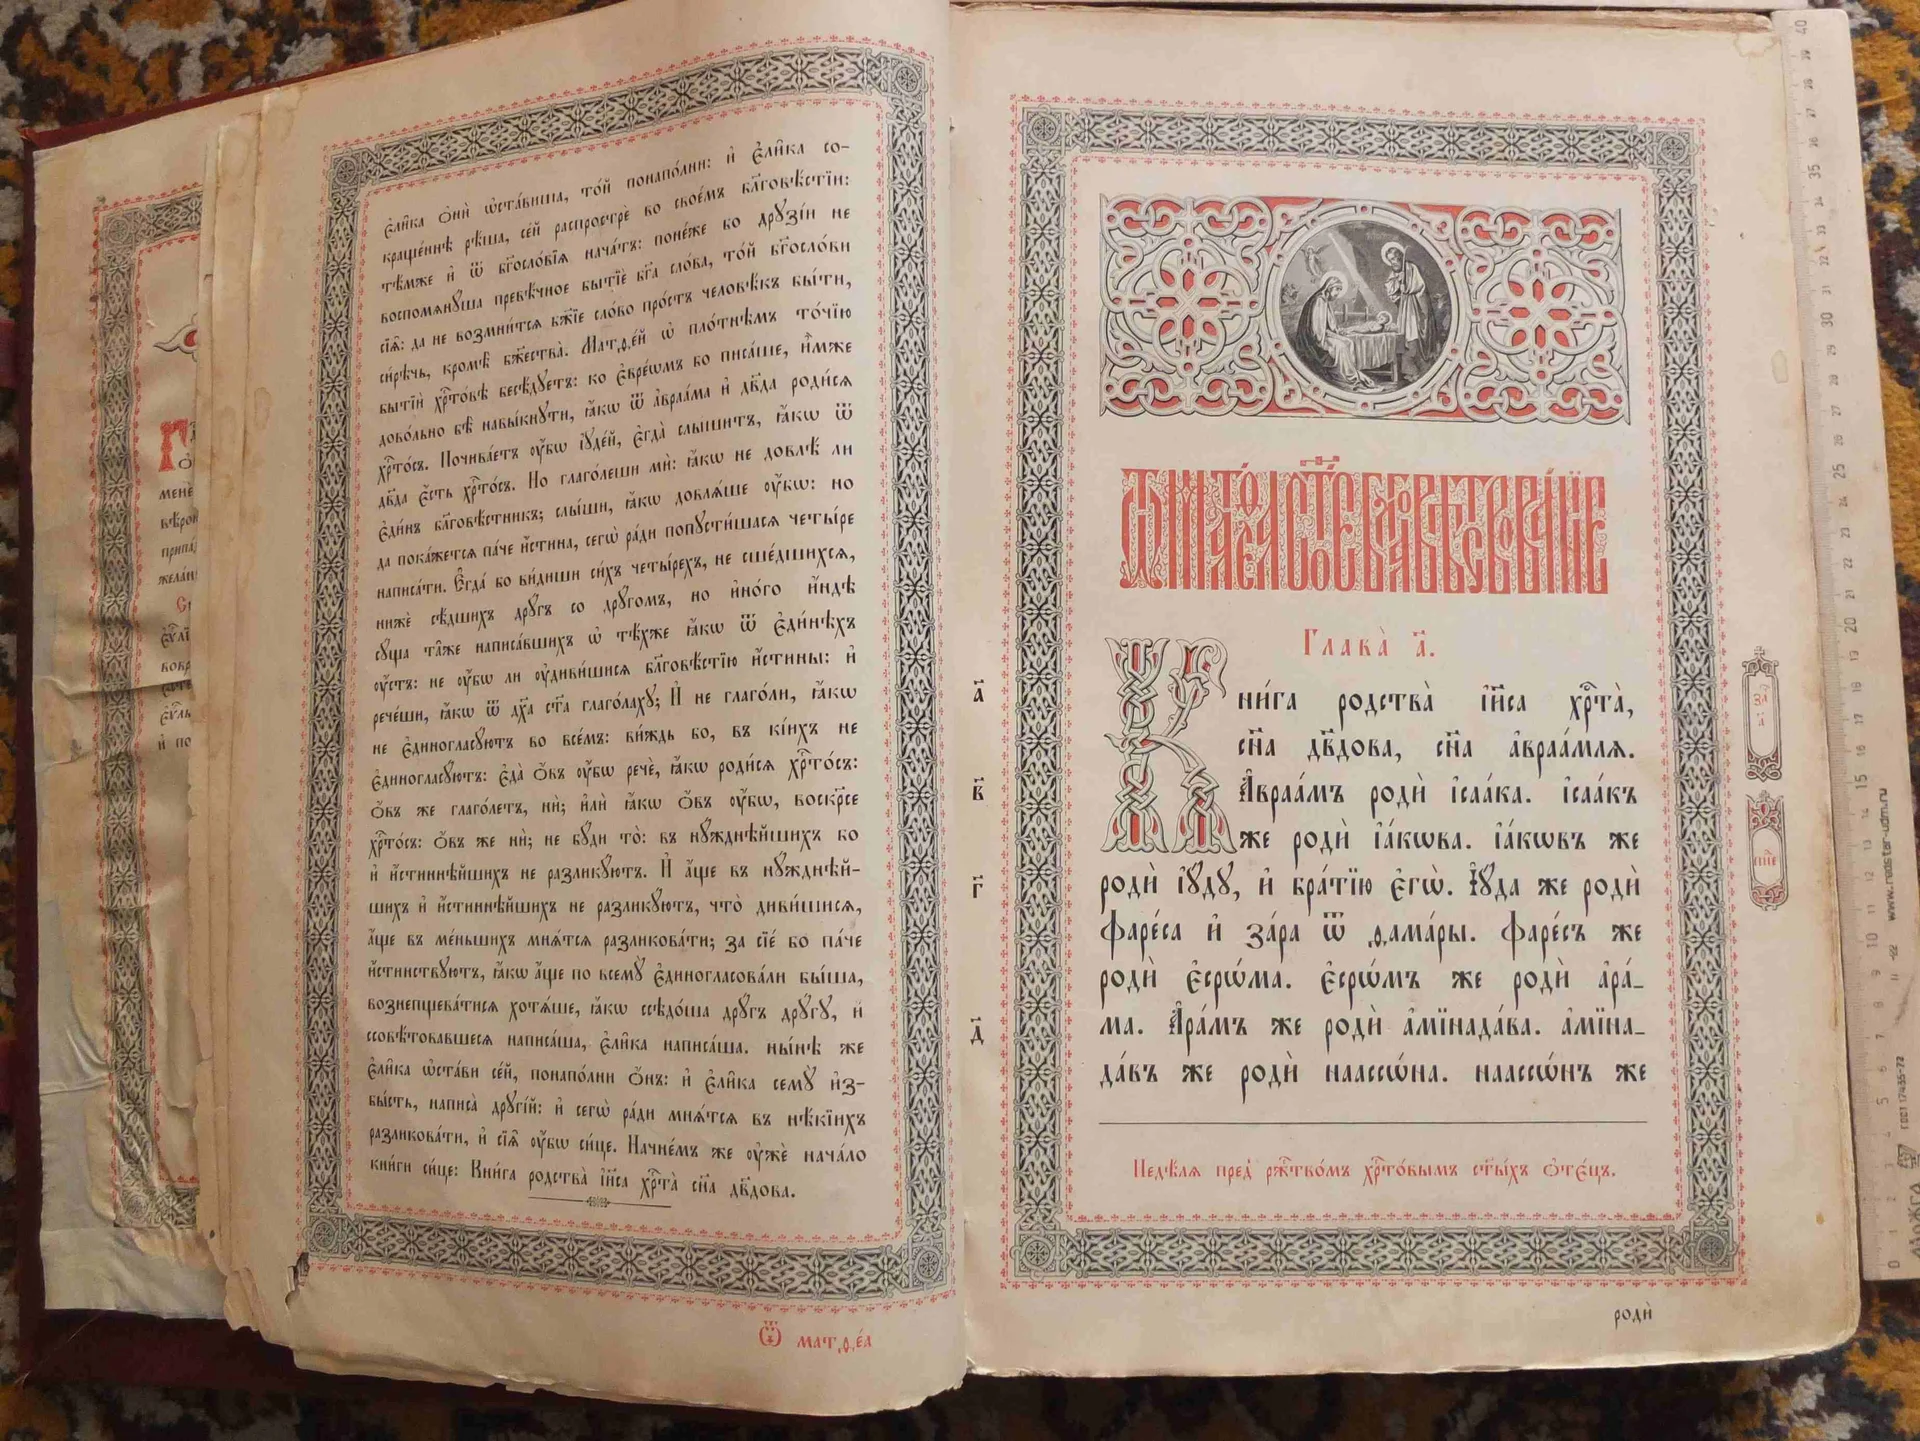 Е҆ли́ка ѻ҆нѝ ѡ҆ста́виша, то́й понапо́лни: и҆ є҆ли̑ка со-
краще́ннѣ рѣ́ша, се́й распрострѐ во свое́мъ бл҃говѣ́стїи:
тѣ́мже и҆ ѿ бг҃осло́вїѧ нача́тъ: поне́же бо дрꙋзі́и не
воспомѧнꙋ́ша превѣ́чное бытїѐ бг҃а сло́ва, то́й бг҃осло́ви
сїѧ̑: да не возмни́тсѧ бж҃їе сло́во про́стъ человѣ́къ бы́ти,
си́рѣчь, кромѣ̀ бж҃ества̀. Матѳе́й ѡ҆ плотнѣ́мъ то́чїю
бытїѝ хрⷭ҇то́вѣ бесѣ́дꙋетъ: ко є҆вре́ѡмъ бо писа́ше, и҆̀мже
дово́льно бѣ̀ навы́кнꙋти, ꙗ҆́кѡ ѿ а҆враа́ма и҆ дв҃да роди́сѧ
хрⷭ҇то́съ. Почива́етъ ᲂу҆́бѡ і҆ꙋде́й, є҆гда̀ слы́шитъ, ꙗ҆́кѡ ѿ
дв҃да є҆́сть хрⷭ҇то́съ. Но глаго́леши мѝ: ꙗ҆́кѡ не довлѣ́ ли
є҆ди́нъ бл҃говѣ́стникъ; слы́ши, ꙗ҆́кѡ довлѧ́ше ᲂу҆́бѡ: но
да пока́жетсѧ па́че и҆́стина, сегѡ̀ ра́ди попꙋсти́шасѧ четы́ре
написа́ти. Е҆гда́ бо ви́диши си́хъ четы́рехъ, не сше́дшихсѧ,
нижѐ сѣ́дшихъ дрꙋ́гъ со дрꙋ́гомъ, но и҆но́го и҆́ндѣ
сꙋ́ща та̑же написа́вшихъ ѡ҆ тѣ́хже ꙗ҆́кѡ ѿ є҆ди́нѣхъ
ᲂу҆́стъ: не ᲂу҆́бѡ ли ᲂу҆диви́шисѧ бл҃говѣ́стїю и҆́стины: и҆
рече́ши, ꙗ҆́кѡ ѿ дх҃а ст҃а глаго́лахꙋ; И҆ не глаго́ли, ꙗ҆́кѡ
не є҆диногласꙋ́ютъ во все́мъ: ви́ждь бо, въ кі́ихъ не
є҆диногласꙋ́ютъ: є҆да̀ ѻ҆́въ ᲂу҆́бѡ речѐ, ꙗ҆́кѡ роди́сѧ хрⷭ҇то́съ:
ѻ҆́въ же глаго́летъ, нѝ; и҆лѝ ꙗ҆́кѡ ѻ҆́въ ᲂу҆́бѡ, воскрⷭ҇се
хрⷭ҇то́съ: ѻ҆́въ же нѝ; не бꙋ́ди то̀: въ нꙋ́жднѣйшихъ бо
и҆ и҆́стиннѣйшихъ не разликꙋ́ютъ. И҆ а҆́ще въ нꙋ́жднѣй-
шихъ и҆ и҆́стиннѣйшихъ не разликꙋ́ютъ, что̀ диви́шисѧ,
а҆́ще въ ме́ньшихъ мнѧ́тсѧ разликова́ти; за сїе́ бо па́че
и҆́стинствꙋютъ, ꙗ҆́кѡ а҆́ще по всемꙋ̀ є҆диногласова́ли бы́ша,
вознепщева́тисѧ хотѧ́ше, ꙗ҆́кѡ ссѣдо́ша дрꙋ́гъ дрꙋ́гꙋ, и҆
ссовѣ́товавшесѧ написа́ша, є҆ли̑ка написа́ша. ны́нѣ же
є҆ли̑ка ѡ҆ста́ви се́й, понапо́лни ѻ҆́нъ: и҆ є҆ли̑ка семꙋ̀ и҆з-
бы́сть, написа̀ дрꙋгі́й: и҆ сегѡ̀ ра́ди мнѧ́тсѧ въ нѣ́кїихъ
разликова́ти, и҆ сїѧ̑ ᲂу҆́бѡ си́це. Начне́мъ же ᲂу҆жѐ нача́ло
кни́ги си́це: Кни́га родства̀ і҆и҃са хрⷭ҇та̀ сн҃а дв҃дова.
Ѿ матѳе́а
Ѿ матѳе́а ст҃о́е бл҃говѣствова́нїе
Глава̀ а҃.
Кни́га родства̀ і҆и҃са хрⷭ҇та̀,
сн҃а дв҃дова, сн҃а а҆враа́млѧ.
а҃ А҆враа́мъ родѝ і҆саа́ка. і҆саа́къ
в҃ же родѝ і҆а́кѡва. і҆а́кѡвъ же
родѝ і҆ꙋ́дꙋ, и҆ бра́тїю є҆гѡ̀. І҆ꙋ́да же родѝ
г҃ фаре́са и҆ за́ра ѿ ѳама́ры. фаре́съ же
родѝ є҆срѡ́ма. є҆срѡ́мъ же родѝ а҆ра́_
д҃ ма. А҆ра́мъ же родѝ а҆мїнада́ва. а҆мїна_
да́въ же родѝ наассѡ́на. наассѡ́нъ же
Недѣ́лѧ пред̾ ржⷭ҇тво́мъ хрⷭ҇то́вымъ ст҃ы́хъ ѻ҆тє́цъ.
родѝ
0 1 2 3 4 5 6 7 8 9 10 11 12 13 14 15 16 17 18 19 20 21 22 23 24 25 26 27 28 29 30 31 32 33 34 35 36 37 38 39 40
www.reaster-udm.ru
ГОСТ 17435-72